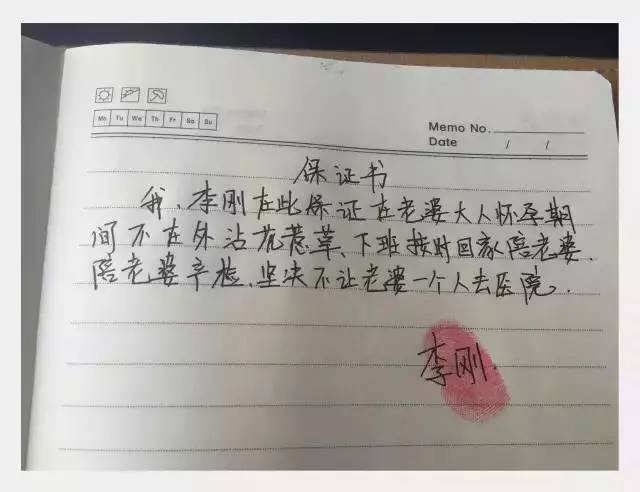 Mo Tu We Th Fr Sa Su
Memo No.
Date / /
保证书
我、李刚在此保证在老婆大人怀孕期
间不在外沾花惹草、下班按时回家陪老婆、
陪老婆产检、坚决不让老婆一个人去医院。
李刚.